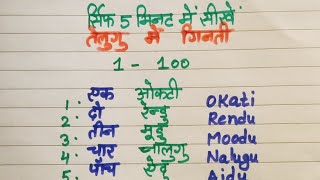 र्सिफ 5 मिनट में सीखें
तेलुगु में गिनती
1 - 100
1. एक ओकटी Okati
2. दो रेन्डु Rendu
3. तीन मूडु Moodu
4. चार नालुगु Nalugu
5. पाँच ऐदु Aidu